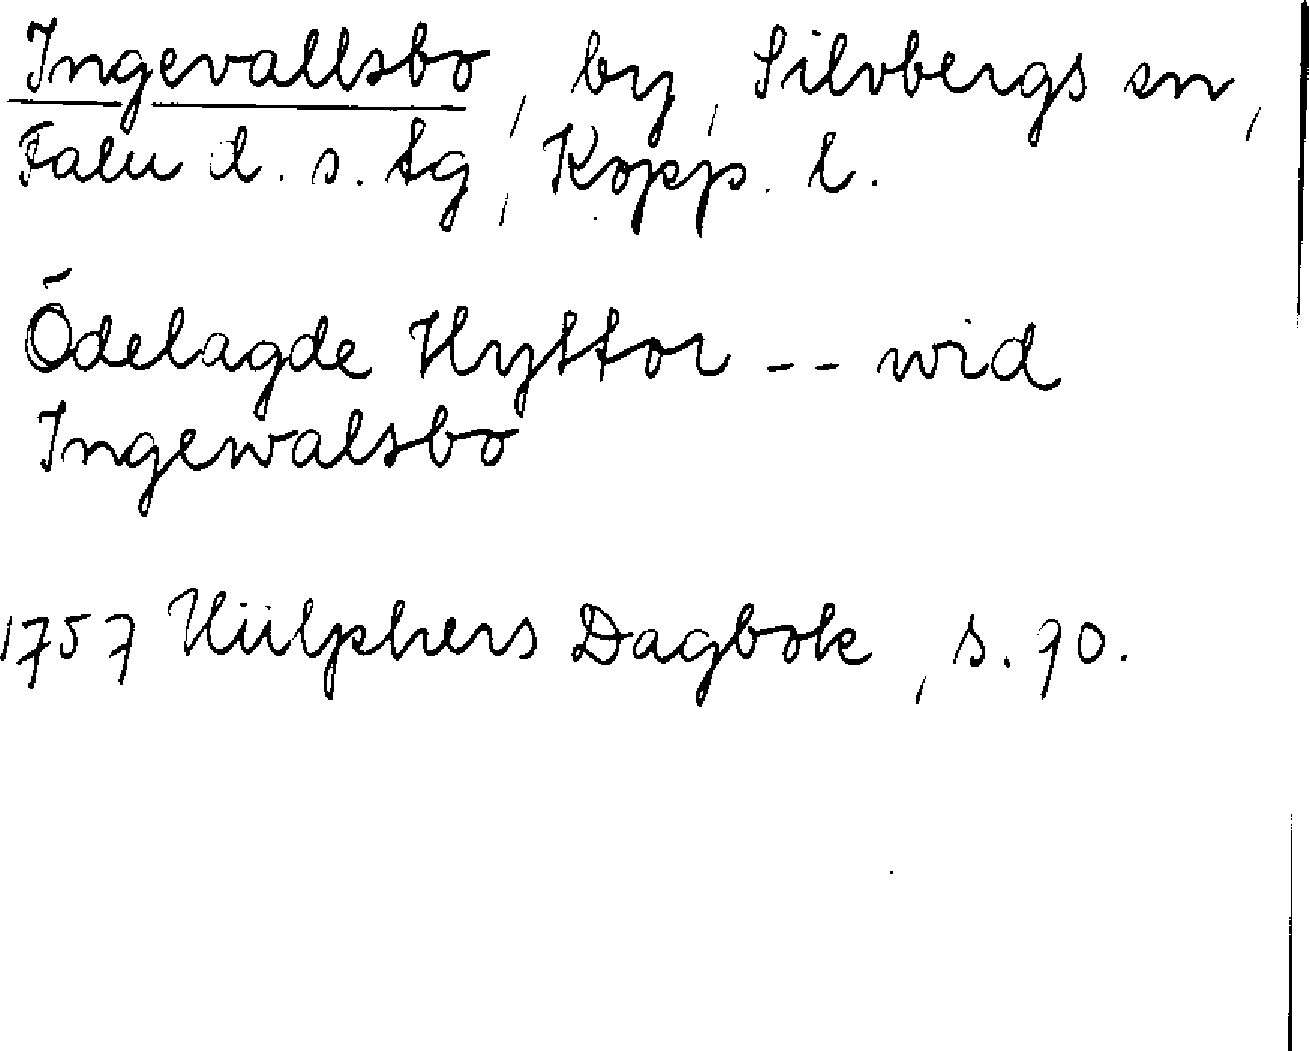 Ingevallsbo, by, Silvbergs sn,
Falu d. s. tg, Kopp. l.
Ödelagde Hyttor -- wid
Ingewalsbo
1757 Hülphers Dagbok, s. 90.